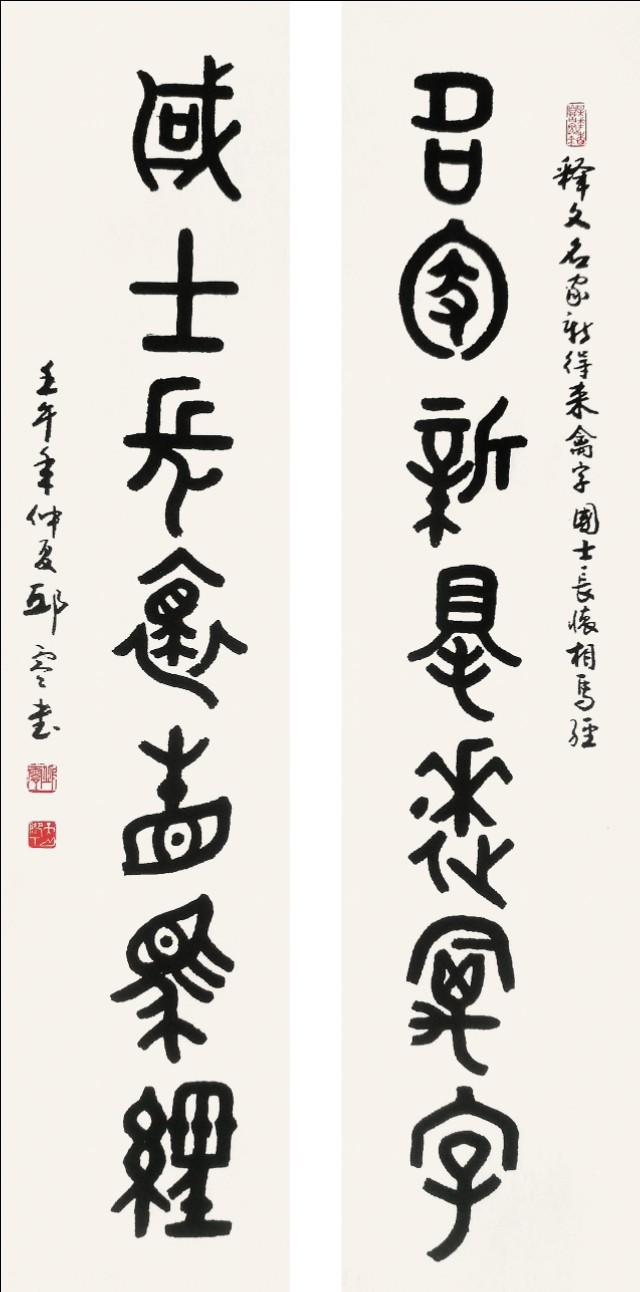 释文名家新得来禽字國士長懷相馬經
名家新得来禽字
國士長懷相馬經
壬午年仲夏邱零书